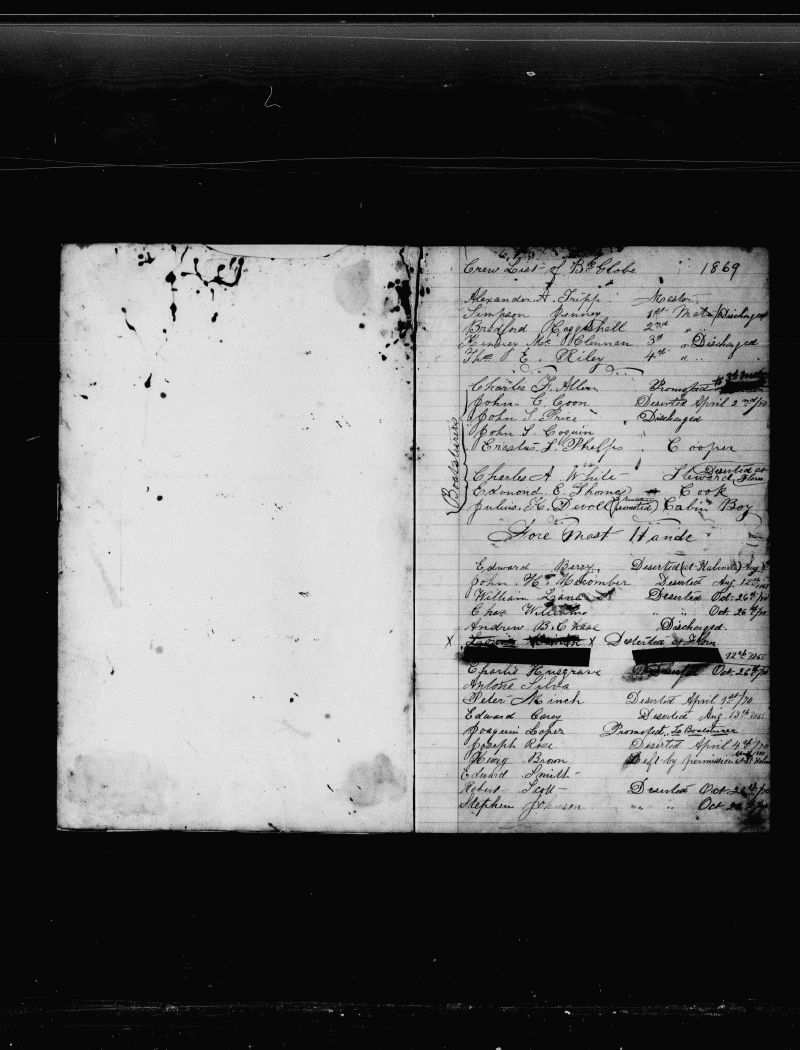 Crew List of Bk Globe 1869
Alexander A. Tripp Master
Simpson Jenney 1st Mate/Discharged
Bradford Coggshall 2nd " "
Kenney Mc Clennan 3d " Discharged
Thos E. Riley 4th " "
Charles F. Allen Promoted to 3d Mate
John C. Coon Deserted April 2nd/70
John S. Price Discharged
John S. Coquin
Erastus S. Phelps Cooper
Boatsteerers
Charles A. White Steward Deserted at Flores
Edmond E. Thomas Cook
Julius H. Devoll (promoted) Cabin Boy
Fore Mast Hands
Edward Berry Deserted (at Aug
John H. Macomber Deserted Aug 12th
William Lane Deserted Oct. 26th/70
Chas Williams " " Oct 26th/70
Andrew B. Chase Discharged.
X X Deserted at Flores
12th 1869
Charlie Musgrave Deserted Oct. 26th/70
Antone Silva
Peter Minch Deserted April 1st/70
Edward Carey Deserted Aug. 13th
Joaquin Lopez Promoted to Boatsteerer
Joseph Rose Deserted April 4th/70
Henry Brown Left by permission at St
Edward Smith
Robert Scott Deserted Oct 26th/70
Stephen Johnson " " Oct 26th/70